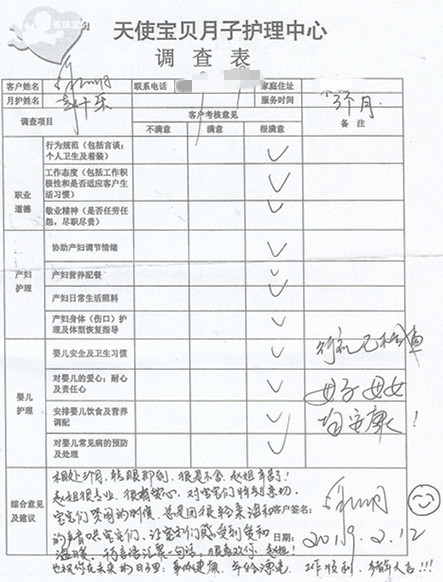 天使宝贝月子护理中心
调查表
客户姓名 联系电话 家庭住址
月护姓名 服务时间 3个月
调查项目 客户考核意见 备注
不满意 满意 很满意
职业道德
行为规范（包括言谈；个人卫生及着装） ✓
工作态度（包括工作积极性和是否适应客户生活习惯） ✓
敬业精神（是否任劳任怨，尽职尽责） ✓
产妇护理
协助产妇调节情绪 ✓
产妇营养配餐 ✓
产妇日常生活照料 ✓
产妇身体（伤口）护理及体型恢复指导 ✓
婴儿护理
婴儿安全及卫生习惯 ✓
对婴儿的爱心；耐心及责任心 ✓
安排婴儿饮食及营养调配 ✓
对婴儿常见病的预防及处理 ✓
母子母女
均安康！
综合意见及建议
相处3个月，转眼即到，很是不舍，赵姐辛苦！
赵姐很专业，很有爱心，对宝宝们特别亲切，
宝宝们哭闹的时候，总是用很轻柔温和
的声音哄宝宝们，让宝宝们感受到爱和
温暖，
也祝你在未来的日子里：身体健康，年轻漂亮，工作顺利，
客户签名：
日期：2019.2.12